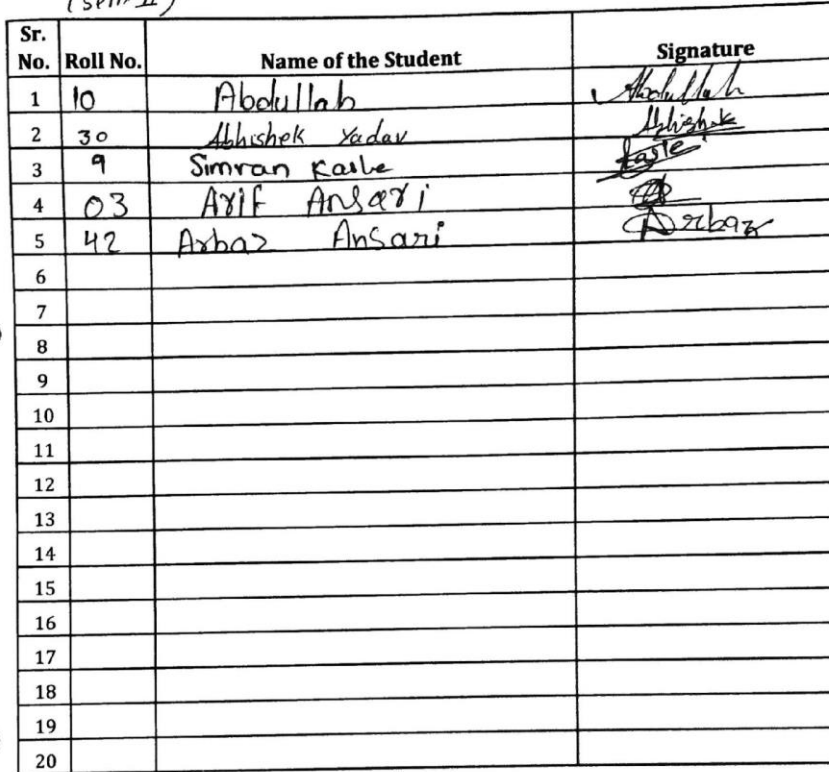 (Sem-II)
Sr. No. Roll No. Name of the Student Signature
1 10 Abdullah Abdullah
2 30 Abhishek Yadav Abhishek
3 9 Simran
4 03 Arif Ansari
5 42 Arbaz Ansari Arbaz
6
7
8
9
10
11
12
13
14
15
16
17
18
19
20